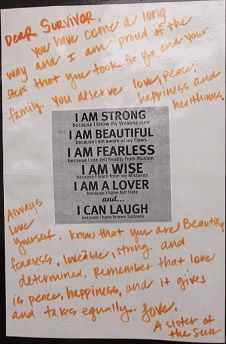 Dear Survivor,
you have come a long
way and I am proud of the
steps that you took for you and your
family. You deserve love, peace,
happiness and
healthiness.
I AM STRONG
because I know my Weaknesses
I AM BEAUTIFUL
because I am aware of my Flaws
I AM FEARLESS
because I can tell Reality from Illusion
I AM WISE
because I learn from my Mistakes
I AM A LOVER
because I have felt Hate
and...
I CAN LAUGH
because I have known Sadness
Always
Love
yourself. Know that you are Beautiful
fearless, loveable, strong and
determined. Remember that love
is peace, happiness, and it gives
and takes equally. Love,
A sister of
the Sun